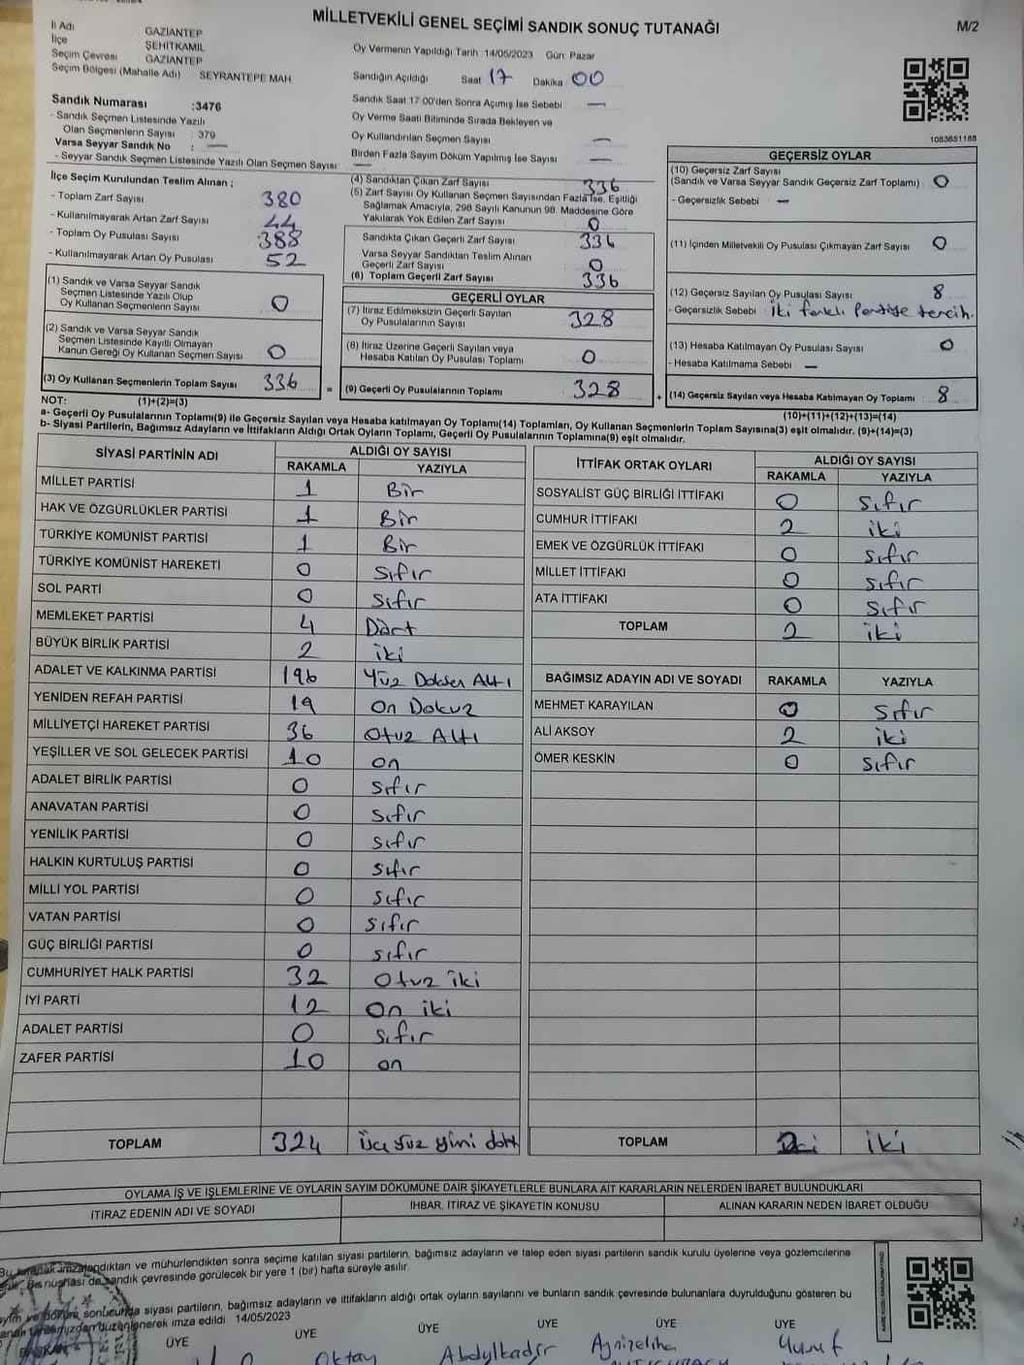 MİLLETVEKİLİ GENEL SEÇİMİ SANDIK SONUÇ TUTANAĞI
M/2
İl Adı GAZİANTEP
İlçe ŞEHİTKAMİL
Seçim Çevresi GAZİANTEP
Seçim Bölgesi (Mahalle Adı) SEYRANTEPE MAH
Oy Vermenin Yapıldığı Tarih 14/05/2023 Gün Pazar
Sandığın Açıldığı Saat 17 Dakika 00
Sandık Numarası :3476
- Sandık Seçmen Listesinde Yazılı
Olan Seçmenlerin Sayısı : 379
Varsa Seyyar Sandık No : —
- Seyyar Sandık Seçmen Listesinde Yazılı Olan Seçmen Sayısı —
Sandık Saat 17 00'den Sonra Açımış İse Sebebi —
Oy Verme Saati Bitiminde Sırada Bekleyen ve
Oy Kullandırılan Seçmen Sayısı —
Birden Fazla Sayım Döküm Yapılmış İse Sayısı —
1083651188
İlçe Seçim Kurulundan Teslim Alınan ;
- Toplam Zarf Sayısı 380
- Kullanılmayarak Artan Zarf Sayısı 44
- Toplam Oy Pusulası Sayısı 388
- Kullanılmayarak Artan Oy Pusulası 52
(1) Sandık ve Varsa Seyyar Sandık
Seçmen Listesinde Yazılı Olup
Oy Kullanan Seçmenlerin Sayısı 0
(2) Sandık ve Varsa Seyyar Sandık
Seçmen Listesinde Kayıtlı Olmayan
Kanun Gereği Oy Kullanan Seçmen Sayısı 0
(3) Oy Kullanan Seçmenlerin Toplam Sayısı 336
(4) Sandıktan Çıkan Zarf Sayısı 336
(5) Zarf Sayısı Oy Kullanan Seçmen Sayısından Fazla İse, Eşitliği
Sağlamak Amacıyla, 298 Sayılı Kanunun 98. Maddesine Göre
Yakılarak Yok Edilen Zarf Sayısı 0
Sandıkta Çıkan Geçerli Zarf Sayısı 336
Varsa Seyyar Sandıktan Teslim Alınan
Geçerli Zarf Sayısı 0
(6) Toplam Geçerli Zarf Sayısı 336
GEÇERLİ OYLAR
(7) İtiraz Edilmeksizin Geçerli Sayılan
Oy Pusulalarının Sayısı 328
(8) İtiraz Üzerine Geçerli Sayılan veya
Hesaba Katılan Oy Pusulası Toplamı 0
= (9) Geçerli Oy Pusulalarının Toplamı 328
GEÇERSİZ OYLAR
(10) Geçersiz Zarf Sayısı
(Sandık ve Varsa Seyyar Sandık Geçersiz Zarf Toplamı) 0
- Geçersizlik Sebebi —
(11) İçinden Milletvekili Oy Pusulası Çıkmayan Zarf Sayısı 0
(12) Geçersiz Sayılan Oy Pusulası Sayısı 8
- Geçersizlik Sebebi iki farklı Partiye tercih.
(13) Hesaba Katılmayan Oy Pusulası Sayısı 0
- Hesaba Katılmama Sebebi —
+ (14) Geçersiz Sayılan veya Hesaba Katılmayan Oy Toplamı 8
NOT: (1)+(2)=(3)
(10)+(11)+(12)+(13)=(14)
a- Geçerli Oy Pusulalarının Toplamı(9) ile Geçersiz Sayılan veya Hesaba katılmayan Oy Toplamı(14) Toplamları, Oy Kullanan Seçmenlerin Toplam Sayısına(3) eşit olmalıdır. (9)+(14)=(3)
b- Siyasi Partilerin, Bağımsız Adayların ve İttifakların Aldığı Ortak Oyların Toplamı, Geçerli Oy Pusulalarının Toplamına(9) eşit olmalıdır.
SİYASİ PARTİNİN ADI ALDIĞI OY SAYISI
RAKAMLA YAZIYLA
MİLLET PARTİSİ 1 Bir
HAK VE ÖZGÜRLÜKLER PARTİSİ 1 Bir
TÜRKİYE KOMÜNİST PARTİSİ 1 Bir
TÜRKİYE KOMÜNİST HAREKETİ 0 Sıfır
SOL PARTİ 0 Sıfır
MEMLEKET PARTİSİ 4 Dört
BÜYÜK BİRLİK PARTİSİ 2 iki
ADALET VE KALKINMA PARTİSİ 196 Yüz Doksan Altı
YENİDEN REFAH PARTİSİ 19 On Dokuz
MİLLİYETÇİ HAREKET PARTİSİ 36 Otuz Altı
YEŞİLLER VE SOL GELECEK PARTİSİ 10 on
ADALET BİRLİK PARTİSİ 0 Sıfır
ANAVATAN PARTİSİ 0 Sıfır
YENİLİK PARTİSİ 0 Sıfır
HALKIN KURTULUŞ PARTİSİ 0 Sıfır
MİLLİ YOL PARTİSİ 0 Sıfır
VATAN PARTİSİ 0 Sıfır
GÜÇ BİRLİĞİ PARTİSİ 0 Sıfır
CUMHURİYET HALK PARTİSİ 32 Otuz iki
İYİ PARTİ 12 On iki
ADALET PARTİSİ 0 Sıfır
ZAFER PARTİSİ 10 on
TOPLAM 324 üç yüz yirmi dört
İTTİFAK ORTAK OYLARI ALDIĞI OY SAYISI
RAKAMLA YAZIYLA
SOSYALİST GÜÇ BİRLİĞİ İTTİFAKI 0 Sıfır
CUMHUR İTTİFAKI 2 iki
EMEK VE ÖZGÜRLÜK İTTİFAKI 0 Sıfır
MİLLET İTTİFAKI 0 Sıfır
ATA İTTİFAKI 0 Sıfır
TOPLAM 2 iki
BAĞIMSIZ ADAYIN ADI VE SOYADI RAKAMLA YAZIYLA
MEHMET KARAYILAN 0 Sıfır
ALİ AKSOY 2 iki
ÖMER KESKİN 0 Sıfır
TOPLAM 2 iki
OYLAMA İŞ VE İŞLEMLERİNE VE OYLARIN SAYIM DÖKÜMÜNE DAİR ŞİKAYETLERLE BUNLARA AİT KARARLARIN NELERDEN İBARET BULUNDUKLARI
İTİRAZ EDENİN ADI VE SOYADI İHBAR, İTİRAZ VE ŞİKAYETİN KONUSU ALINAN KARARIN NEDEN İBARET OLDUĞU
Bu tutanak imzalandıktan ve mühürlendikten sonra seçime katılan siyasi partilerin, bağımsız adayların ve talep eden siyasi partilerin sandık kurulu üyelerine veya gözlemcilerine
Bir nüshası da sandık çevresinde görülecek bir yere 1 (bir) hafta süreyle asılır
sonucunda siyasi partilerin, bağımsız adayların ve ittifakların aldığı ortak oyların sayılarını ve bunların sandık çevresinde bulunanlara duyurulduğunu gösteren bu
düzenlenerek imza edildi 14/05/2023
BAŞKAN ÜYE ÜYE ÜYE ÜYE ÜYE ÜYE
Oktay Abdylkadir Yusuf